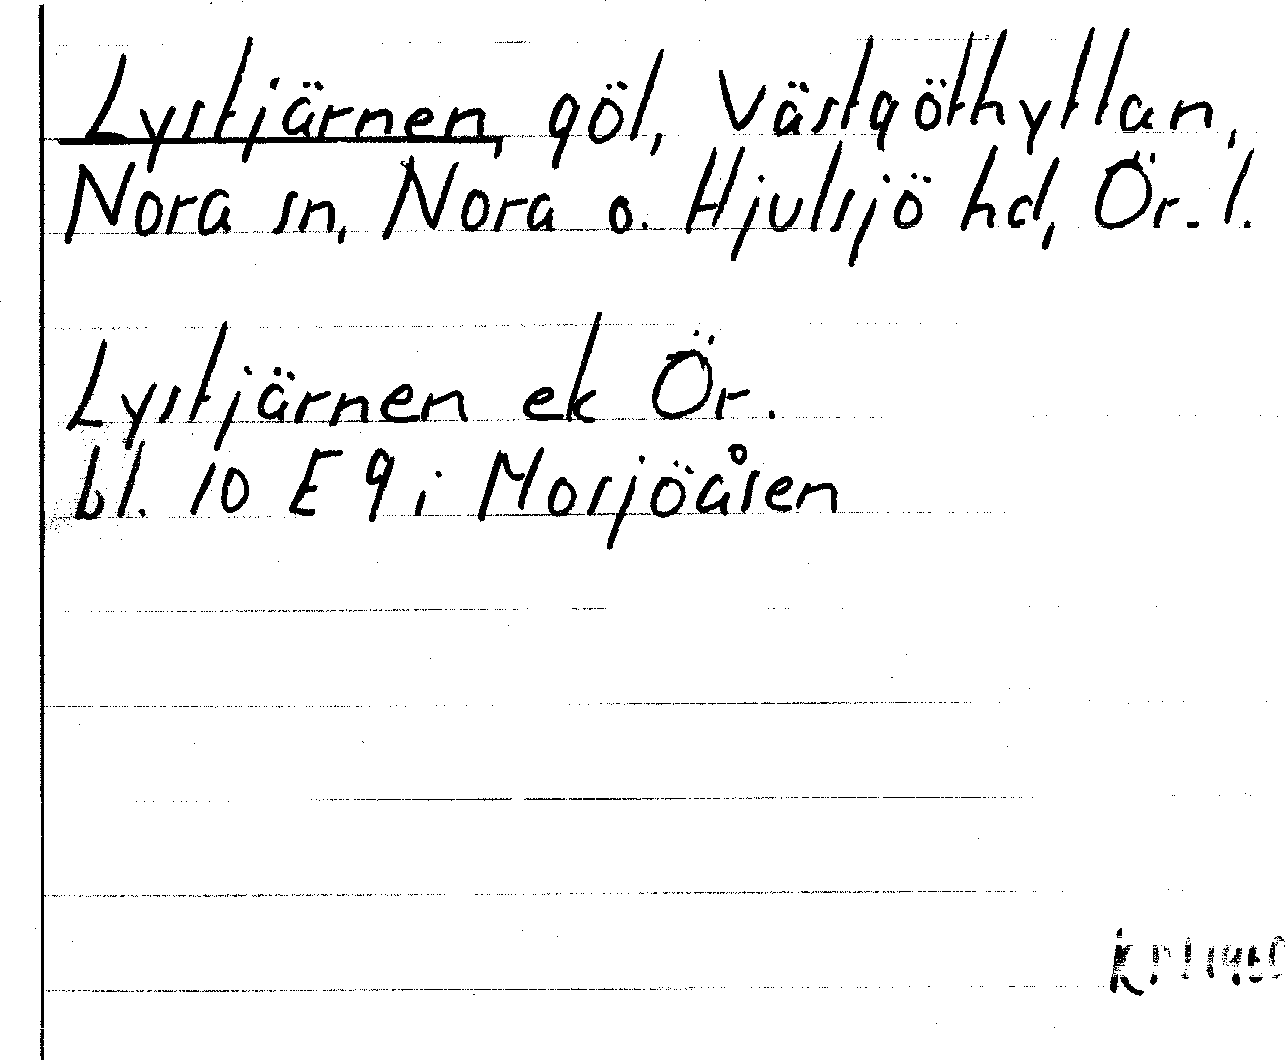 Lystjärnen, göl, Västgöthyttan,
Nora sn, Nora o. Hjulsjö hd, Ör. l.
Lystjärnen ek Ör.
bl. 10 E 9 i Mosjöåsen